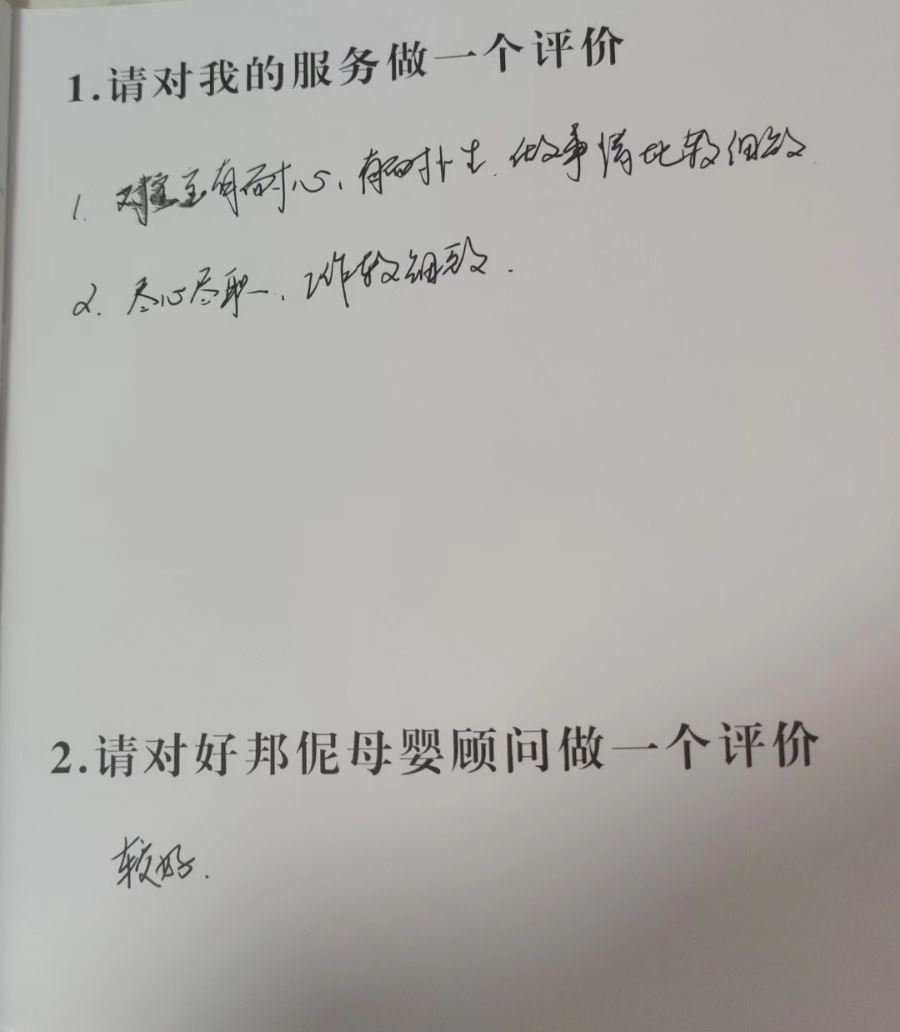 1.请对我的服务做一个评价
1. 对宝宝有耐心、有 做事情比较细致
2. 尽心尽职、工作较细致.
2.请对好邦伲母婴顾问做一个评价
较好.